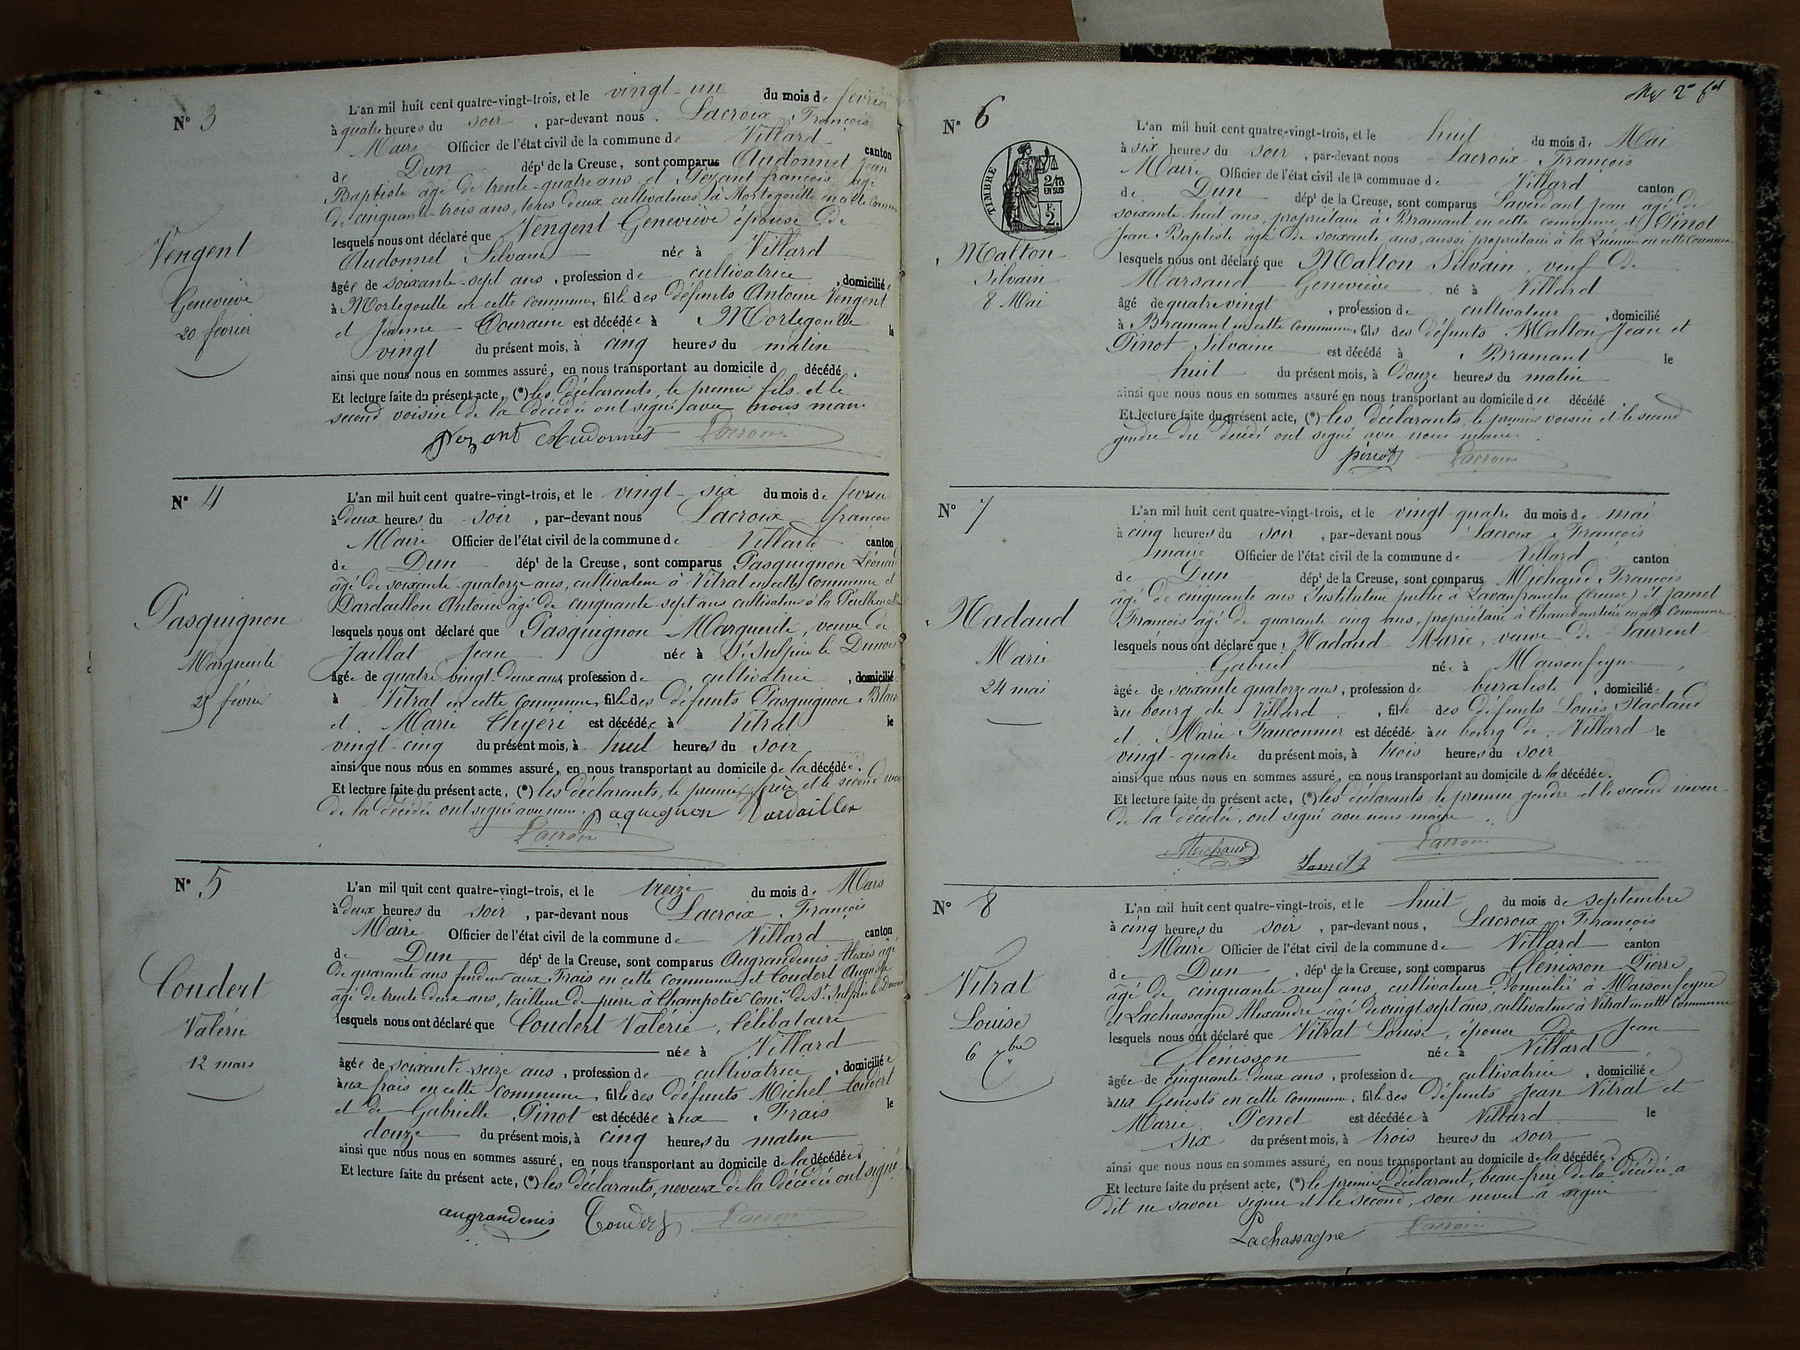 N° 3
Vengent
Geneviève
20 février
L'an mil huit cent quatre-vingt-trois, et le vingt-un du mois de février
à quatre heures du soir, par-devant nous Lacroix François
Maire Officier de l'état civil de la commune de Villard canton
de Dun dépt de la Creuse, sont comparus Audonnet Jean
Baptiste âgé de trente-quatre ans et Peyant françois âgé
de cinquante-trois ans, tous deux cultivateurs à Mortegoutte en cette Commune
lesquels nous ont déclaré que Vengent Geneviève épouse de
Audonnet Silvain née à Villard
âgée de soixante-sept ans, profession de cultivatrice, domiciliée
à Mortegoutte en cette commune, fille des défunts Antoine Vengent
et Jeanne Couraine est décédée à Mortegoutte le
vingt du présent mois, à cinq heures du matin
ainsi que nous nous en sommes assuré, en nous transportant au domicile d décédé.
Et lecture faite du présent acte, (*) les déclarants, le premier fils et le
second voisin de la décédée ont signé avec nous maire
Audonnet Lacroix
N° 4
Pasquignon
Marguerite
25 février
L'an mil huit cent quatre-vingt-trois, et le vingt-six du mois de février
à deux heures du soir, par-devant nous Lacroix françois
Maire Officier de l'état civil de la commune de Villard canton
de Dun dépt de la Creuse, sont comparus Pasquignon Léonard
âgé de soixante-quatorze ans, cultivateur à Vitrat en cette Commune et
Dardaillon Antoine âgé de cinquante sept ans cultivateur à la
lesquels nous ont déclaré que Pasquignon Marguerite, veuve de
Jaillat Jean née à St Sulpice le Dunois
âgée de quatre vingt-deux ans, profession de cultivatrice, domiciliée
à Vitrat en cette commune, fille des défunts Pasquignon Blaise
et Marie est décédée à Vitrat le
vingt-cinq du présent mois, à huit heures du soir
ainsi que nous nous en sommes assuré, en nous transportant au domicile de la décédée.
Et lecture faite du présent acte, (*) les déclarants, le premier frère et le second neveu
de la décédée ont signé avec nous. Paquignon Dardaillon
Lacroix
N° 5
Coudert
Valérie
12 mars
L'an mil quit cent quatre-vingt-trois, et le treize du mois de Mars
à deux heures du soir, par-devant nous Lacroix François
Maire Officier de l'état civil de la commune de Villard canton
de Dun dépt de la Creuse, sont comparus Augrandenis Alexis âgé
de quarante ans fendeur aux Frais en cette commune et Coudert Auguste
âgé de trente deux ans, tailleur de pierre à Champotier Comne de St Sulpice le Dunois
lesquels nous ont déclaré que Coudert Valérie, Célibataire
née à Villard
âgée de soixante-seize ans, profession de cultivatrice, domiciliée
aux frais en cette commune, fille des défunts Michel Coudert
et de Gabrielle Pinot est décédée aux Frais le
douze du présent mois, à cinq heures du matin
ainsi que nous nous en sommes assuré, en nous transportant au domicile de la décédée.
Et lecture faite du présent acte, (*) les déclarants, neveux de la décédée ont signé
augrandenis Coudert Lacroix
N° 6
TIMBRE
2/10 EN SUS
2
Malton
Silvain
8 Mai
L'an mil huit cent quatre-vingt-trois, et le huit du mois de Mai
à six heures du soir, par-devant nous Lacroix François
Maire Officier de l'état civil de la commune de Villard canton
de Dun dépt de la Creuse, sont comparus Laverdant Jean âgé de
soixante-huit ans, propriétaire à Bramant en cette commune et Pinot
Jean-Baptiste âgé de soixante ans, aussi propriétaire à la en cette Commune
lesquels nous ont déclaré que Malton Silvain, veuf de
Marsaud Geneviève né à Villard
âgé de quatre vingt, profession de cultivateur, domicilié
à Bramant en cette commune, fils des défunts Malton Jean et
Pinot Silvaine est décédé à Bramant le
huit du présent mois, à douze heures du matin
ainsi que nous nous en sommes assuré en nous transportant au domicile du décédé
Et lecture faite du présent acte, (*) les déclarants, le premier voisin et le second
gendre du décédé ont signé avec nous maire.
pinot Lacroix
N° 7
Nadaud
Marie
24 mai
L'an mil huit cent quatre-vingt-trois, et le vingt-quatre du mois de mai
à cinq heures du soir, par-devant nous Lacroix François
maire Officier de l'état civil de la commune de Villard canton
de Dun dépt de la Creuse, sont comparus Michaud François
âgé de cinquante ans Instituteur public à Lavaufranche (Creuse) et Jamet
François âgé de quarante cinq ans, propriétaire à en cette Commune
lesquels nous ont déclaré que Nadaud Marie, veuve de Laurent
Gabriel née à Maisonfeyne,
âgée de soixante quatorze ans, profession de buraliste, domiciliée
au bourg de Villard, fille des défunts Louis Nadaud
et Marie Fauconnier est décédée au bourg de Villard le
vingt-quatre du présent mois, à trois heures du soir
ainsi que nous nous en sommes assuré, en nous transportant au domicile de la décédée.
Et lecture faite du présent acte, (*) les déclarants le premier gendre et le second neveu
de la décédée, ont signé avec nous maire.
Michaud Jamet Lacroix
N° 8
Vitrat
Louise
6 7bre
L'an mil huit cent quatre-vingt-trois, et le huit du mois de septembre
à cinq heures du soir, par-devant nous, Lacroix François
Maire Officier de l'état civil de la commune de Villard canton
de Dun, dépt de la Creuse, sont comparus Clénisson Pierre
âgé de cinquante neuf ans, cultivateur domicilié à Maisonfeyne
et Lachassagne Alexandre âgé de vingt sept ans, cultivateur à Vitrat en cette Commune
lesquels nous ont déclaré que Vitrat Louise, épouse de Jean
Clénisson née à Villard
âgée de cinquante deux ans, profession de cultivatrice, domiciliée
aux Genests en cette commune, fille des défunts Jean Vitrat et
Marie Penet est décédée à Villard le
six du présent mois, à trois heures du soir
ainsi que nous nous en sommes assuré, en nous transportant au domicile de la décédée.
Et lecture faite du présent acte, (*) le premier déclarant, beau-frère de la décédée, a
dit ne savoir signer et le second, son neveu a signé
Lachassagne Lacroix